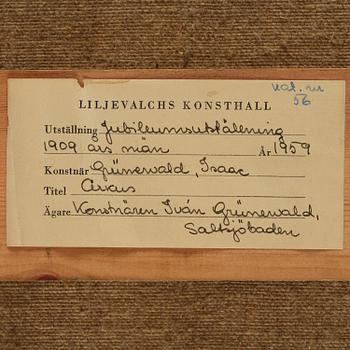 kat. nr
56
LILJEVALCHS KONSTHALL
Utställning Jubileumsutställning
1909 års män År 1959
Konstnär Grünewald, Isaac
Titel Cirkus
Ägare Konstnären Iván Grünewald,
Saltsjöbaden